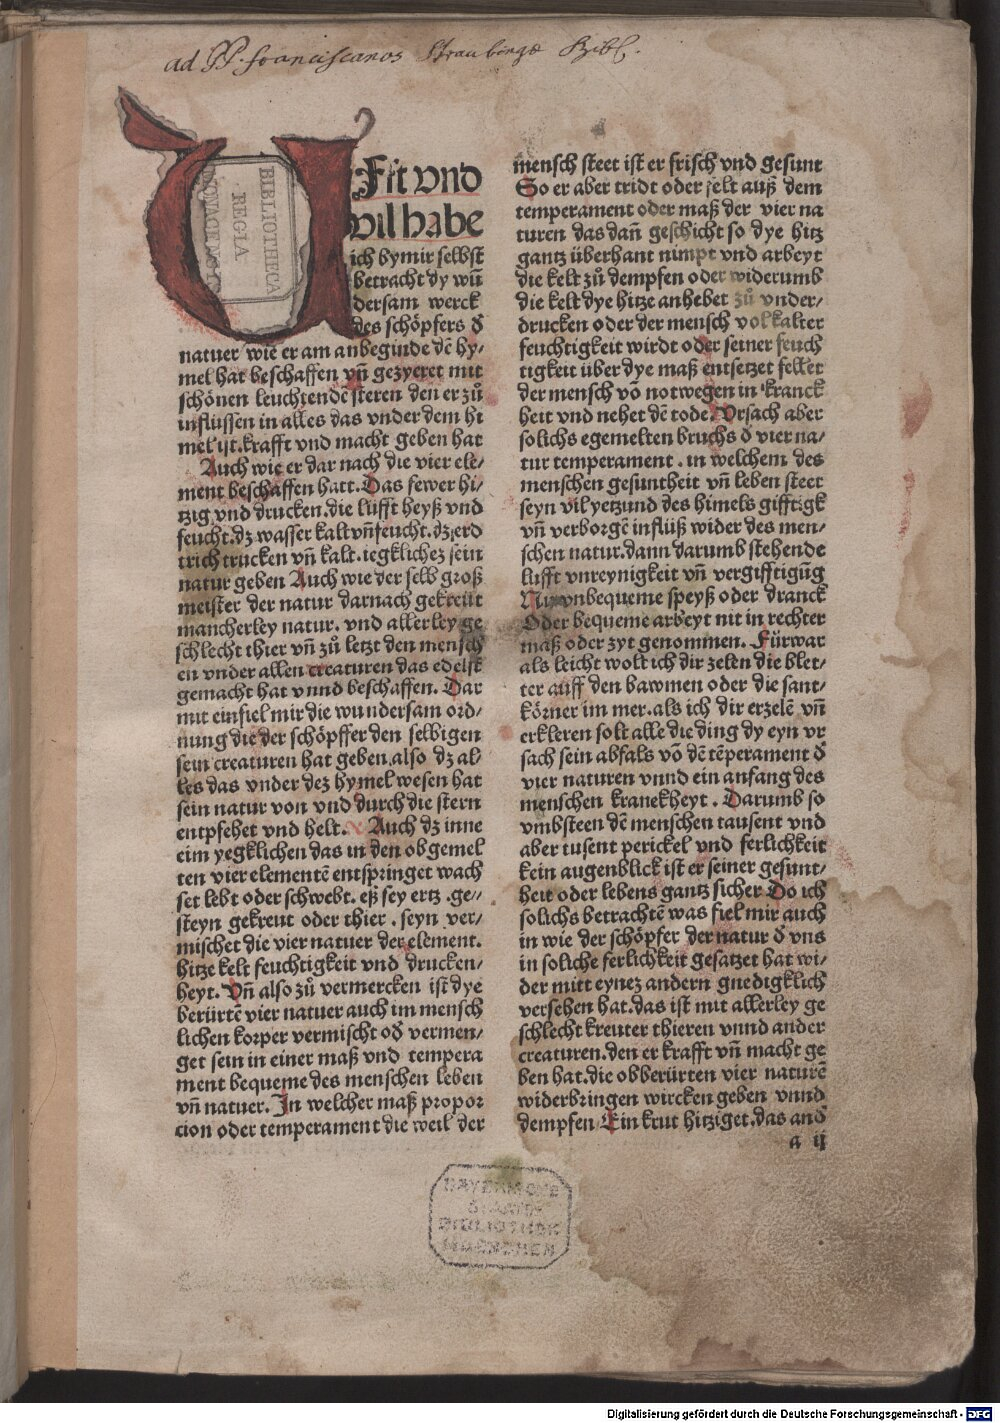 ad PP. Franciscanos Straubingæ Bibl.
BIBLIOTHECA
REGIA
MONACENSIS
UFft vnd
vil habe
ich by mir selbst
betracht dy wū
dersam werck
des schöpfers đ
natuer wie er am anbeginde dē hy/
mel hat beschaffen vn̄ gezyeret mit
schönen leuchtendē steren den er zů
inflüssen in alles das vnder dem hi
mel ist. krafft vnd macht geben hat
Auch wie er dar nach die vier ele/
ment beschaffen hatt. Das fewer hi/
tzig vnd drucken. die lüfft heyß vnd
feucht. dz wasser kalt vn̄ feucht. dz erd
trich trucken vn̄ kalt. iegklichez sein
natur geben Auch wie der selb groß
meister der natur darnach gekreüt
mancherley natur. vnd allerley ge
schlecht thier vn̄ zů letzt den mensch
en vnder allen creaturen das edelst
gemacht hat vnnd beschaffen. Dar
mit einfiel mir die wundersam ord/
nung die der schöpffer den selbigen
sein creaturen hat geben. also dz al/
les das vnder dez hymel wesen hat
sein natur von vnd durch die stern
entpfehet vnd helt. Auch dz inne
eim yegklichen das in den obgemel
ten vier elementē entspringet wach
set lebt oder schwebt. eß sey ertz. ge//
steyn gekreut oder thier. seyn ver/
mischet die vier natuer der element.
hitze kelt feuchtigkeit vnd drucken/
heyt. Vn̄ also zů vermercken ist dye
berürtē vier natuer auch im mensch
lichen korper vermischt ođ vermen/
get sein in einer maß vnd tempera
ment bequeme des menschen leben
vn̄ natuer. In welcher maß propor
cion oder temperament die weil der
mensch steet ist er frisch vnd gesunt
So er aber tridt oder felt auß dem
temperament oder maß der vier na
turen das dan̄ geschicht so dye hitz
gantz überhant nimpt vnd arbeyt
die kelt zů dempfen oder widerumb
die kelt dye hitze anhebet zů vnder/
drucken oder der mensch vol kalter
feuchtigkeit wirdt oder seiner feuch
tigkeit über dye maß entsetzet fellet
der mensch vō not wegen in kranck
heit vnd nehet dē tode. Vrsach aber
solichs egemelten bruchs đ vier na/
tur temperament. in welchem des
menschen gesuntheit vn̄ leben steet
seyn vil yetzund des himels gifftigk
vn̄ verborgē inflüß wider des men/
schen natur. dann darumb stehende
lufft vnreynigkeit vn̄ vergifftigūg
Nu vnbequeme speyß oder dranck
Oder bequeme arbeyt nit in rechter
maß oder zyt genommen. Fürwar
als leicht wolt ich dir zelen die blet/
ter auff den bawmen oder die sant/
körner im mer. als ich dir erzelē vn̄
erkleren solt alle die ding dy eyn vr
sach sein abfals vō dē tēperament đ
vier naturen vnnd ein anfang des
menschen kranekheyt. Darumb so
vmbsteen dē menschen tausent vnd
aber tusent perickel vnd ferlichkeit
kein augenblick ist er seiner gesunt/
heit oder lebens gantz sicher Do ich
solichs betrachtē was fiel mir auch
in wie der schöpfer der natur đ vns
in soliche ferlichkeit gesatzet hat wi/
der mitt eynez andern gnedigklich
versehen hat. das ist mit allerley ge
schlecht kreuter thieren vnnd ander
creaturen. den er krafft vn̄ macht ge
ben hat. die obberürten vier naturē
widerbringen wircken geben vnnd
dempfen Ein krut hitziget. das anđ
a ij
BAYERISCHE
STAATS-
BIBLIOTHEK
MUENCHEN
Digitalisierung gefördert durch die Deutsche Forschungsgemeinschaft - DFG